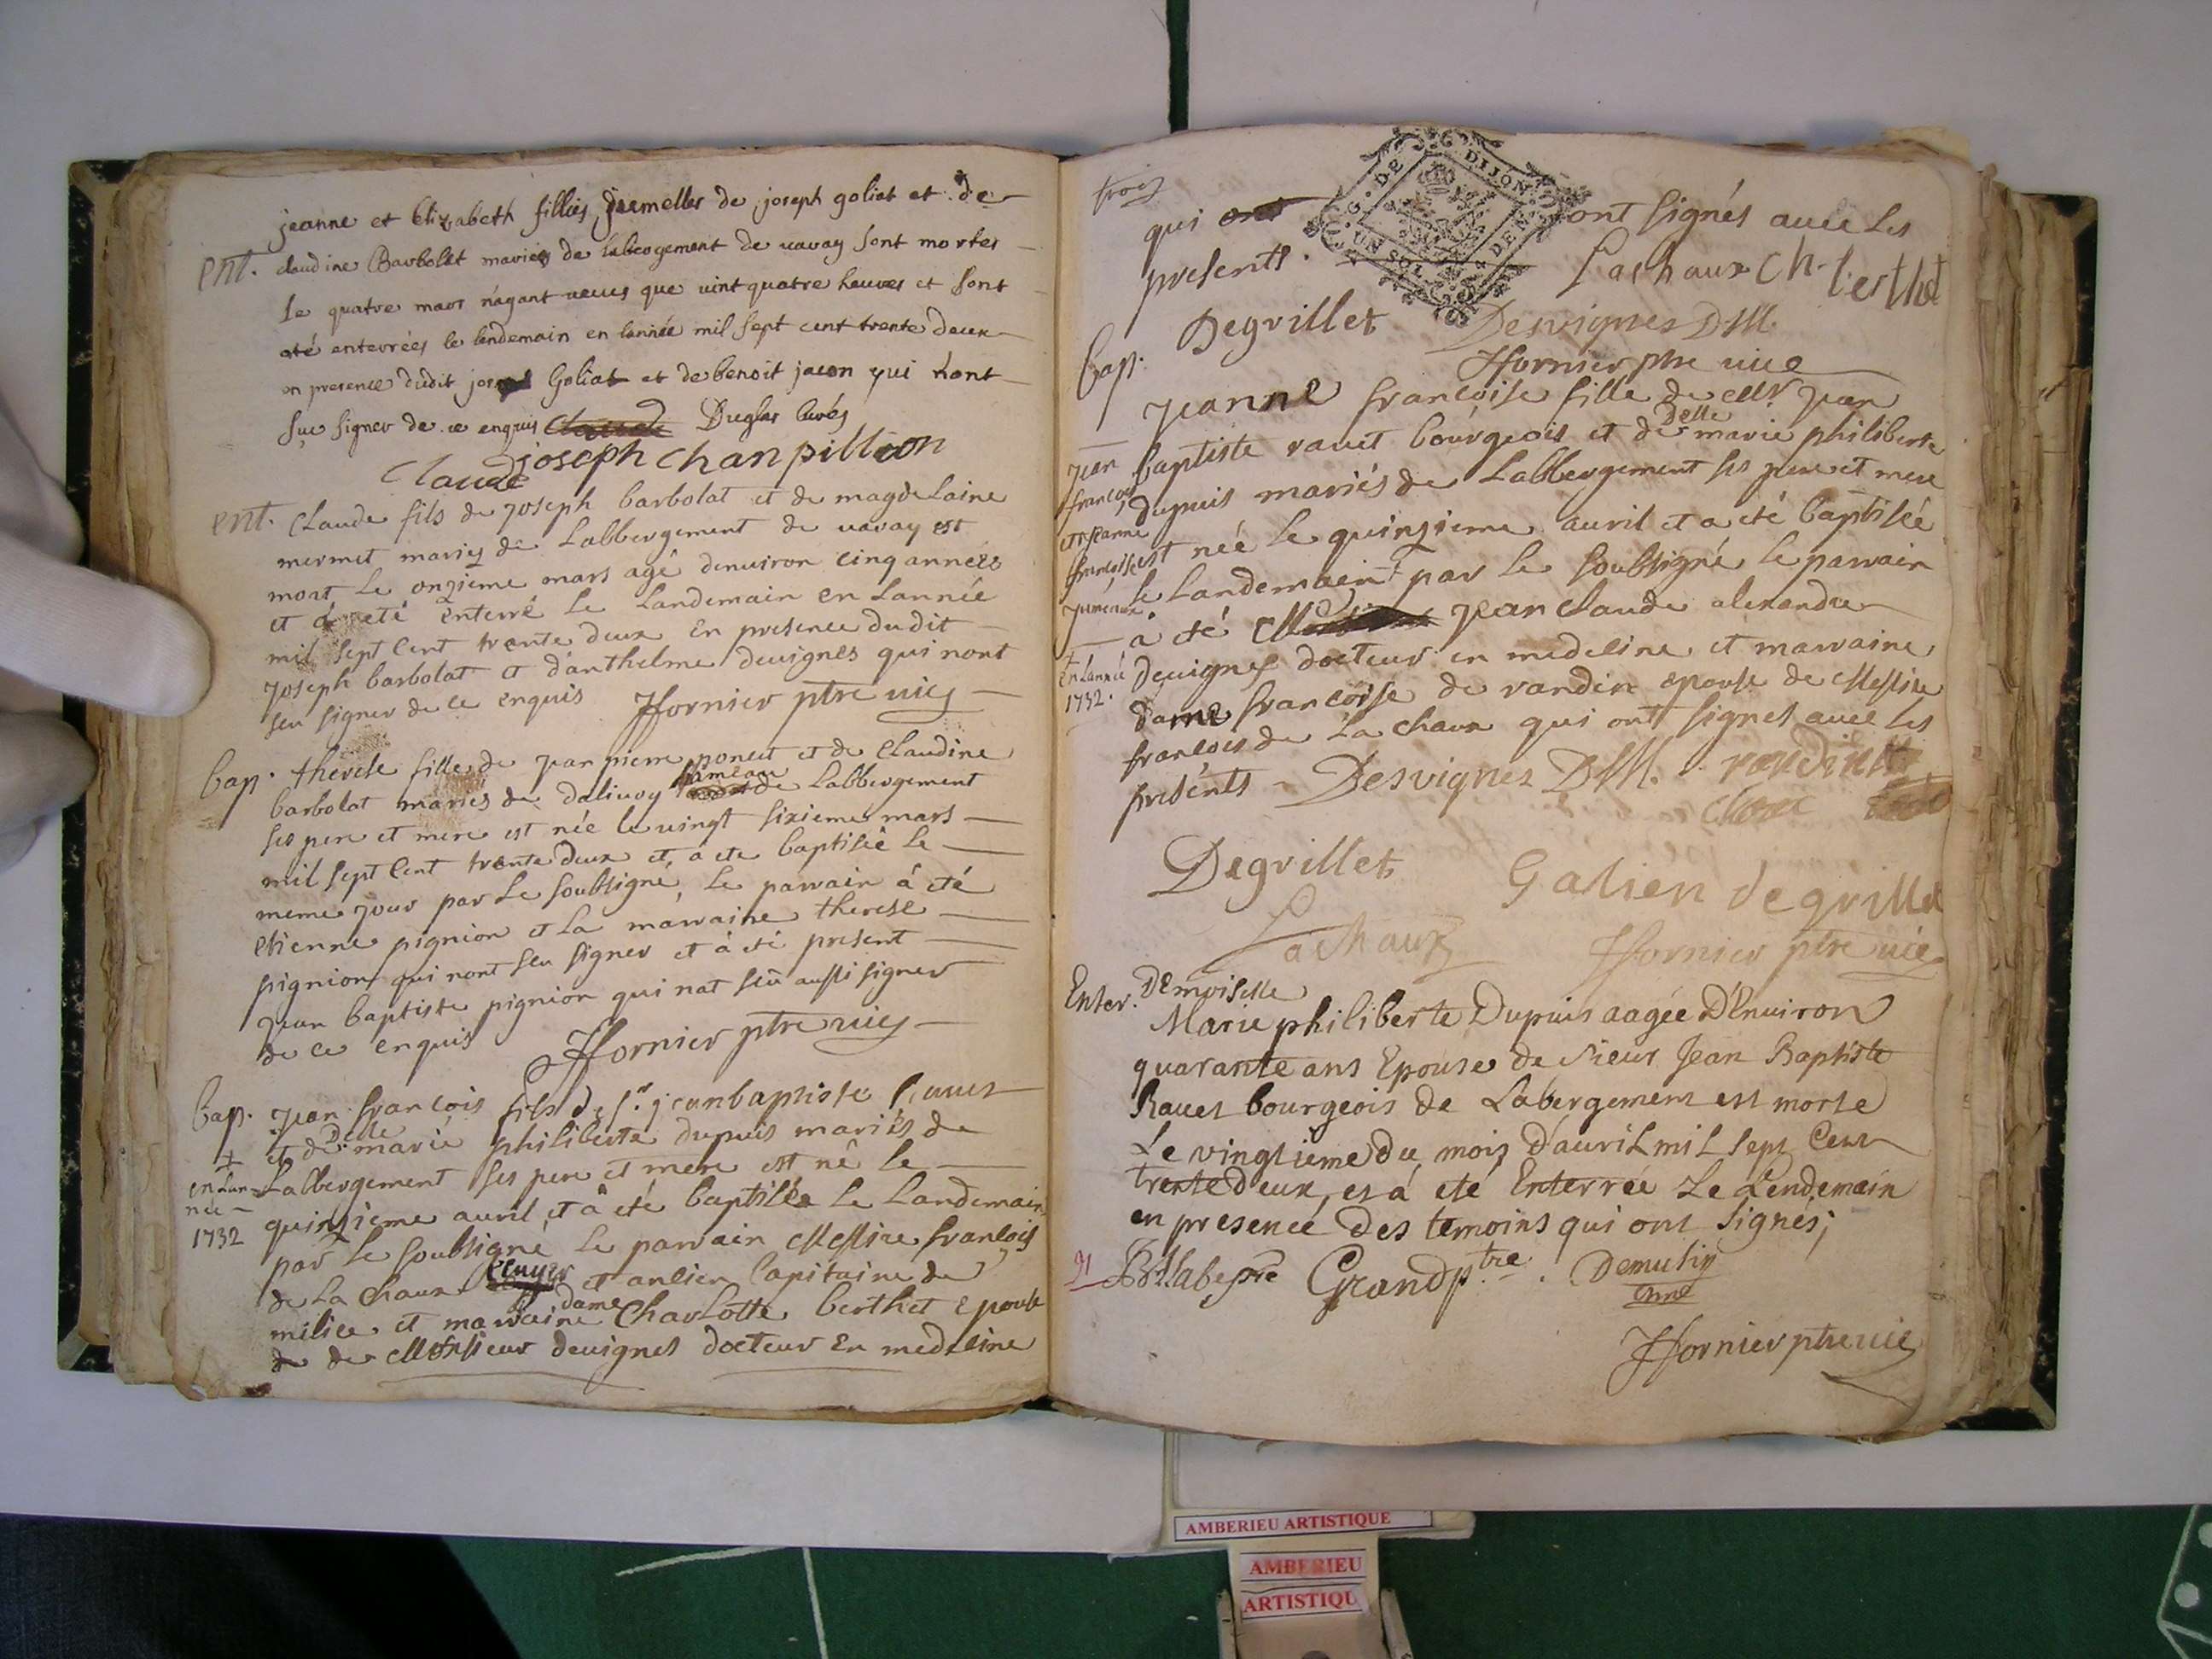 jeanne et Elizabeth filles jeemelles de joseph goliat et de
ent. claudine Barbolat mariés de labergement de varay sont mortes
le quatre mars n'ayant vecues que vint quatre heures et sont
eté enterrées le lendemain en lannée mil sept cent trente deux
en presence dudit joseph Goliat et de benoit jacon qui nont
sçu signer de ce enquis Duglas curés
joseph chanpillion
Claude
ent. Claude fils de joseph barbolat et de magdelaine
mermet mariés de Labbergement de varay est
mort le onzieme mars agé denviron cinq années
et a eté enterré le Landemain en Lannée
mil sept cent trente deux en presence dudit
joseph barbolat et d'anthelme devignes qui nont
seu signer de ce enquis ffornier ptre vics
bap. therese fille de jean pierre poncet et de Claudine
barbolat mariés de dalivoy hameau de Labbergement
ses pere et mere est née le vingt sixieme mars
mil sept cent trente deux et a ete baptisée le
meme jour par Le soubsigné, le parrain à eté
etienne pignion et la marraine therese
pignion qui nont seu signer et à eté present
jean baptiste pignion qui nat seü aussi signer
de ce enquis ffornier ptre vics
bap. jean francois fils de sr. jean baptiste Ravet
et de Delle marie philiberte dupuis mariés de
+ Labbergement ses pere et mere est né le
en Lan-
née
1732
quinzieme avril et à eté baptisée le Landemain
par le soubsigné le parrain Messire francois
de La Chaux Ecuyer et ancien Capitaine de
milice et marraine dame Charlotte berthet epouse
de de Monsieur devignes docteur En medecine
trois
DE DIJON
UN SOL
qui ont ont signés avec les
presents. Lachaux Ch. berthet
Degrillet Desvignes DM
ffornier ptre vice
bap. jeanne francoise fille de Mr jean
baptiste ravet bourgeois et de Delle marie philiberte
dupuis mariés de Labbergement ses pere et mere
est née le quinzieme avril et a eté baptisée
le Landemain + par le soubsigné le parrain
jean
francois
et jeanne
francoise
jumeaux
a eté M jean claude alexandre
devignes docteur en medecine et marraine
+
en Lannée
1732.
dame francoise de randin epouse de Messire
francois de La chaux qui ont signes avec les
presents Desvignes DM. randin
Degrillet Galien degrillet
Lachaux ffornier ptre vic
Enter. DEmoiselle
Marie philiberte Dupuis aagée D'Environ
quarante ans Epouse de sieur Jean Baptiste
Ravet bourgeois de Labergement est morte
Le vingtieme du mois d'avril mil sept Cent
trente deux, et à eté Enterrée Le Lendemain
en presence des temoins qui ont signés;
Grand ptre. Demusy
ffornier ptre vic
AMBERIEU ARTISTIQUE
AMBERIEU
ARTISTIQU